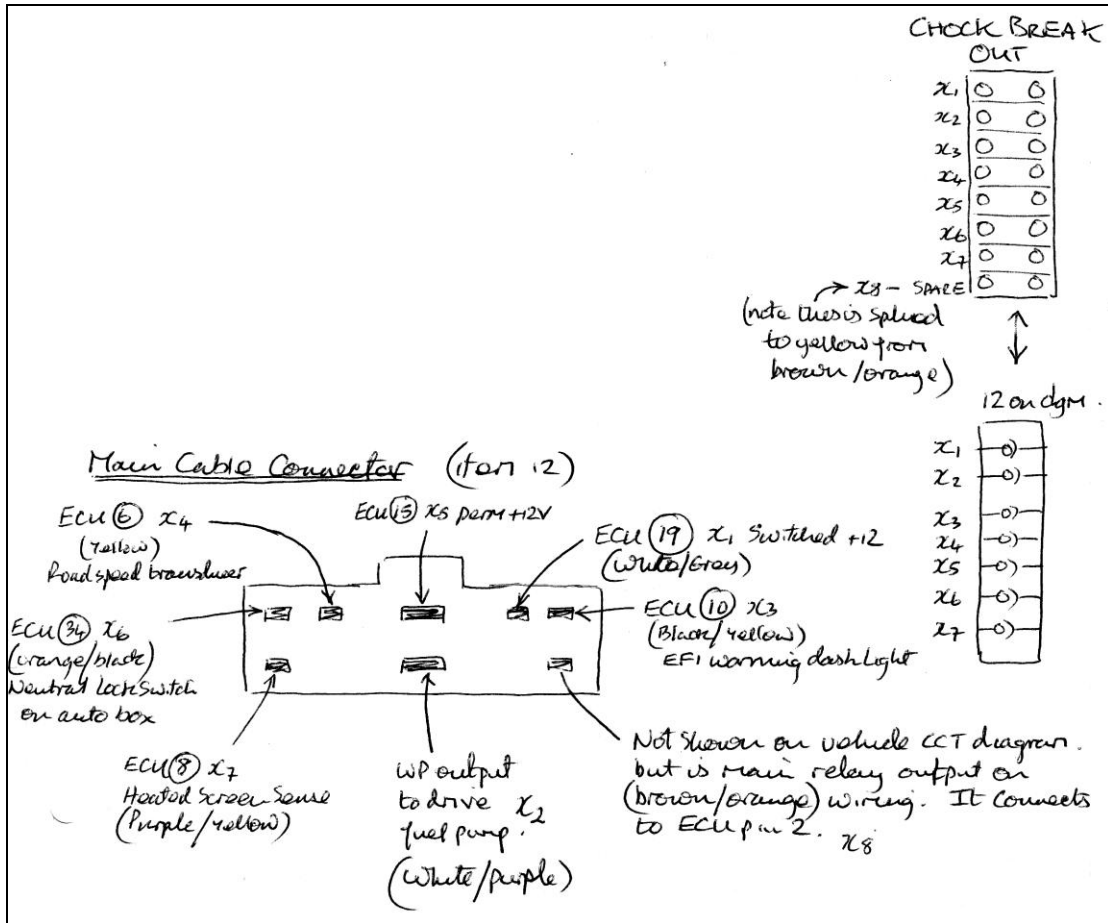 CHOCK BREAK
OUT
x1
x2
x3
x4
x5
x6
x7
x8 - SPARE
(note this is spliced
to yellow from
brown/orange)
12 on dgm.
x1
x2
x3
x4
x5
x6
x7
Main Cable Connector (item 12)
ECU 6 x4
(Yellow)
Road speed transducer
ECU 15 x5 perm +12V
ECU 19 x1 Switched +12
(White/Grey)
ECU 10 x3
(Black/yellow)
EFI warning dash light
ECU 34 x6
(orange/black)
Neutral Lock Switch
on auto box
ECU 8 x7
Heated Screen Sense
(Purple/Yellow)
output
to drive x2
fuel pump.
(White/purple)
Not shown on vehicle CCT diagram.
but is main relay output on
(brown/orange) wiring. It connects
to ECU pin 2.
x8